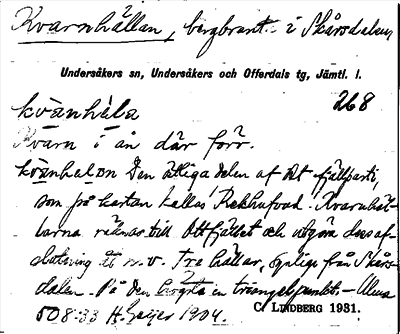 Kvarnhällan, bergbrant i Skårsdalen,
Undersåkers sn, Undersåkers och Offerdals tg, Jämtl. l.
268
kvänhäla
Kvarn i ån där förr.
kvänhalan Den östliga delen af det fjällparti,
som på kartan kallas Rekhufvud. Kvarnhäl-
larna räknas till Ottfjället och utgöra dess af-
slutning åt n.v. Tre hällar, synliga från Skårs-
dalen. På den högsta en triangelpunkt.
C. LINDBERG 1931.
508:33 H. Geijer 1904.